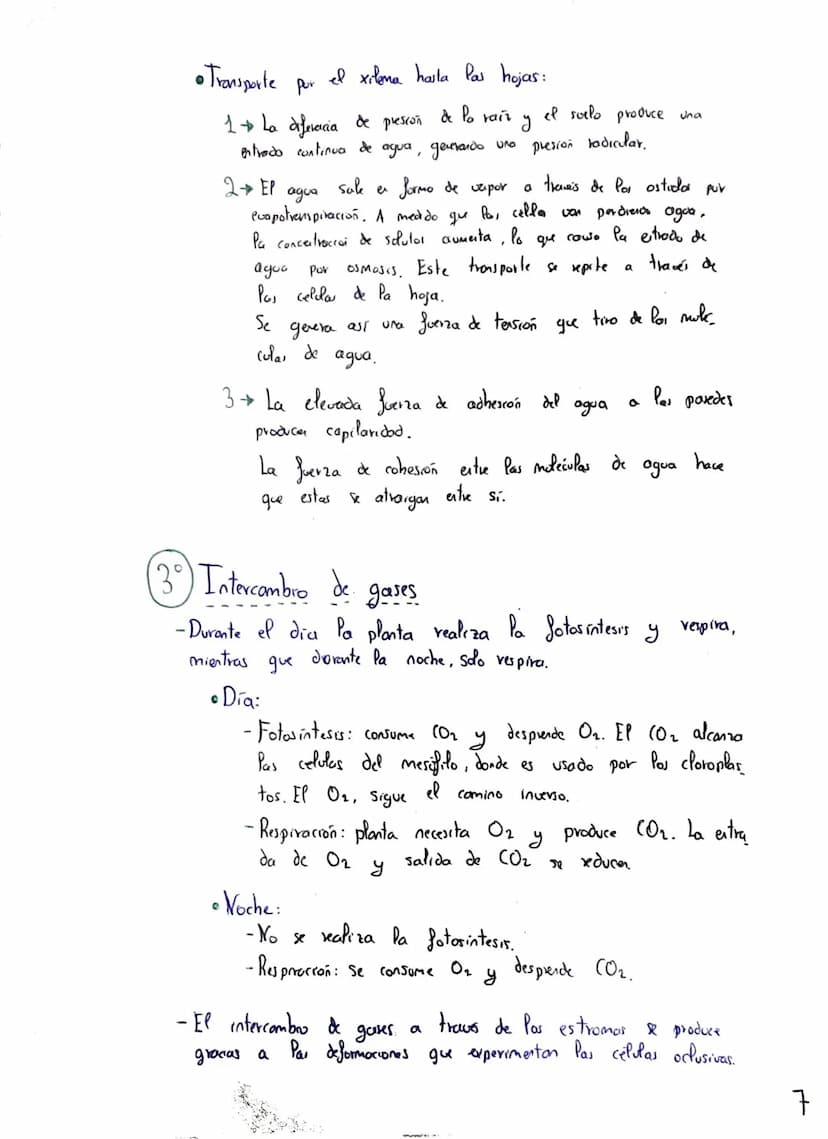 • Transporte por el xilema hasta las hojas:
1→ La diferencia de presión de la raíz y el suelo produce una
entrada continua de agua, generando una presión radicular.
2→ El agua sale en forma de vapor a través de los ostiolos por
evapotranspiración. A medida que las céllas van perdiendo agua,
la concentración de solutos aumenta, lo que causa la entrada de
agua por osmosis. Este transporte se repite a través de
las celulas de la hoja.
Se genera así una fuerza de tensión que tira de las molé-
culas de agua.
3→ La elevada fuerza de adhesión del agua a las paredes
producen capilaridad.
La fuerza de cohesión entre las moléculas de agua hace
que estas se atraigan entre sí.
3º Intercambio de gases
- Durante el día la planta realiza la fotosíntesis y respira,
mientras que durante la noche, solo respira.
• Día:
- Fotosíntesis: consume CO2 y desprende O2. El CO2 alcanza
las celulas del mesófilo, donde es usado por los cloroplas_
tos. El O2, sigue el camino inverso.
- Respiración: planta necesita O2 y produce CO2. La entra_
da de O2 y salida de CO2 se reducen
• Noche:
- No se realiza la fotosíntesis.
- Respiración: se consume O2 y desprende CO2.
- El intercambio de gases a través de los estromas se produce
gracias a las deformaciones que experimentan las células oclusivas.
7